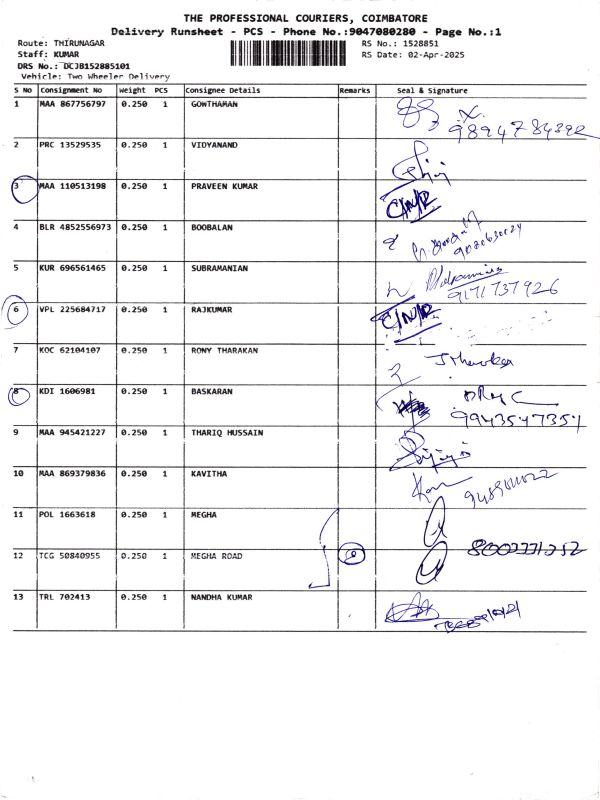 THE PROFESSIONAL COURIERS, COIMBATORE
Delivery Runsheet - PCS - Phone No.:9047080280 - Page No.:1
Route: THIRUNAGAR
RS No.: 1528851
Staff: KUMAR
RS Date: 02-Apr-2025
DRS No.: DCJB152885101
Vehicle: Two Wheeler Delivery
S No Consignment No Weight PCS Consignee Details Remarks Seal & Signature
1 MAA 867756797 0.250 1 GOWTHAMAN
9894784392
2 PRC 13529535 0.250 1 VIDYANAND
3 MAA 110513198 0.250 1 PRAVEEN KUMAR C/N/R
4 BLR 4852556973 0.250 1 BOOBALAN
5 KUR 696561465 0.250 1 SUBRAMANIAN
9171737926
6 VPL 225684717 0.250 1 RAJKUMAR C/N/R
7 KOC 62104107 0.250 1 RONY THARAKAN
8 KDI 1606981 0.250 1 BASKARAN
9943547351
9 MAA 945421227 0.250 1 THARIQ HUSSAIN
10 MAA 869379836 0.250 1 KAVITHA
11 POL 1663618 0.250 1 MEGHA
12 TCG 50840955 0.250 1 MEGHA ROAD
13 TRL 702413 0.250 1 NANDHA KUMAR